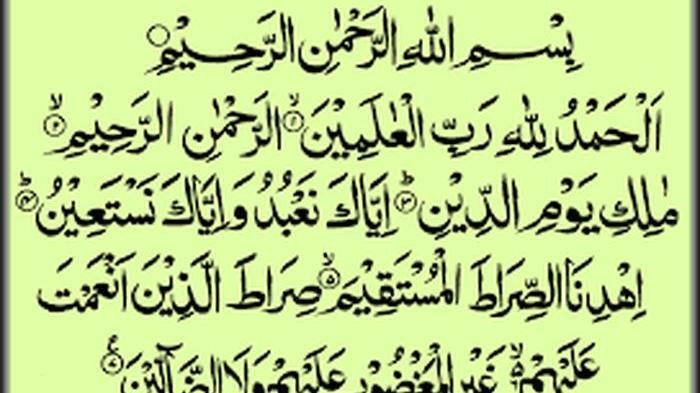 بِسْمِ اللهِ الرَّحْمٰنِ الرَّحِيْمِ
اَلْحَمْدُ لِلّٰهِ رَبِّ الْعٰلَمِيْنَ ۙ﴿۱﴾ الرَّحْمٰنِ الرَّحِيْمِ ۙ﴿۲﴾
مٰلِكِ يَوْمِ الدِّيْنِ ؕ﴿۳﴾ اِيَّاكَ نَعْبُدُ وَاِيَّاكَ نَسْتَعِيْنُ ؕ﴿۴﴾
اِهْدِنَا الصِّرَاطَ الْمُسْتَقِيْمَ ۙ﴿۵﴾ صِرَاطَ الَّذِيْنَ اَنْعَمْتَ
عَلَيْهِمْ ۙ﴿۶﴾ غَيْرِ الْمَغْضُوْبِ عَلَيْهِمْ وَلَا الضَّآلِّيْنَ ﴿۷﴾